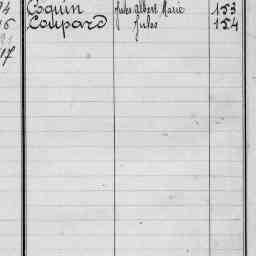 Coquin Jules Albert Marie 153
Coupard Jules 154